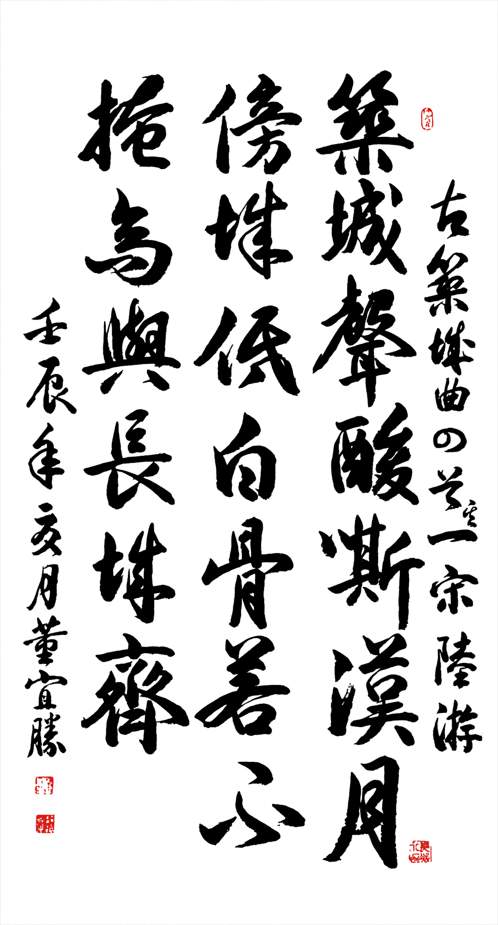 古築城曲四首其一宋陸游
築城聲酸嘶漢月
傍城低白骨若不
掩高與長城齊
壬辰年亥月董宜勝